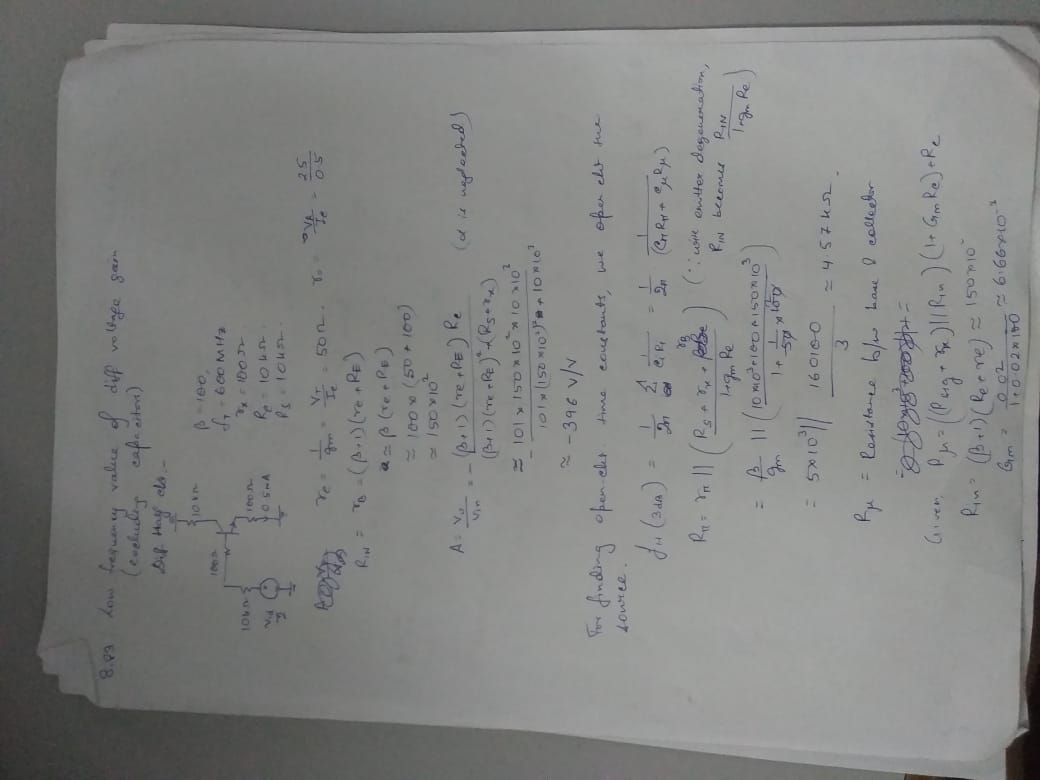 8.83 Low frequency value of diff voltage gain
(excluding capacitors)
Diff Half ckt:-
10kΩ
100Ω
10kΩ
100Ω
0.5mA
Vid/2
β = 100,
fT = 600 MHz
rx = 100Ω
Rc = 10kΩ.
Rs = 10kΩ.
re = 1/gm = VT/Ic = 50Ω. ro = VA/Ic = 25/0.5
RIN = rB = (β+1)(re+RE)
≃ β(re+RE)
≃ 100×(50+100)
≃ 150×10²
A = Vo/Vin = -(β+1)(re+RE) Rc / (β+1)(re+RE)²+(Rs+rx) (α is neglected)
≈ - 101×150×10²×10×10³ / 101×(150×10²)² + 10×10³
≃ -396 V/V
For finding open-ckt time constants, we open ckt the
source.
fH (3dB) = 1/2π Σ 1/CiRi = 1/2π 1/(CπRπ + CμRμ)
Rπ = rπ || (Rs + rx + rB / 1+gmRe) (∵ with emitter degeneration,
RIN becomes RIN / 1+gmRe)
= β/gm || (10×10³+100+150×10³ / 1 + 1/50 × 100)
= 5×10³ || 160100 / 3 ≃ 4.57 kΩ.
Rμ = Resistance b/w base & collector
Given, Rμ = ((Rsig + rx) || Rin)(1+GmRc)+Rc
Rin = (β+1)(Re+re) ≈ 150×10²
Gm = 0.02 / 1+0.02×100 ≈ 6.66×10⁻³